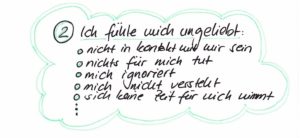 ② Ich fühle mich ungeliebt:
o nicht in Kontakt mit mir sein
o nichts für mich tut
o mich ignoriert
o mich nicht versteht
o sich keine Zeit für mich nimmt